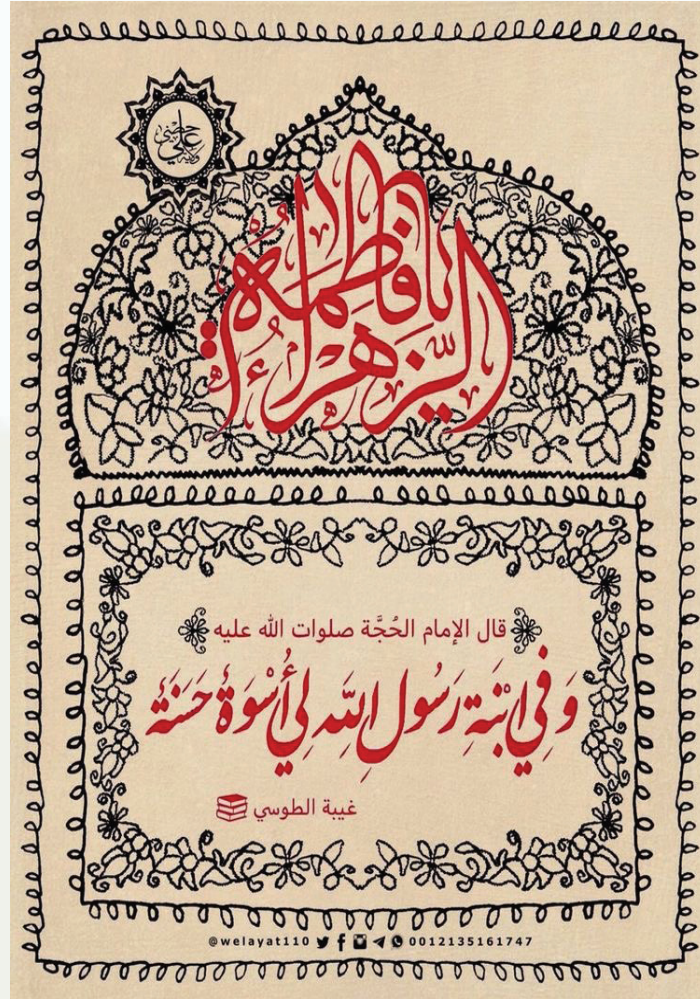 علي
يا فاطمة
الزهراء
قال الإمام الحُجَّة صلوات الله عليه
وَفِي ابْنَةِ رَسُولِ اللهِ لِي أُسْوَةٌ حَسَنَةٌ
غيبة الطوسي
@welayat110 0012135161747